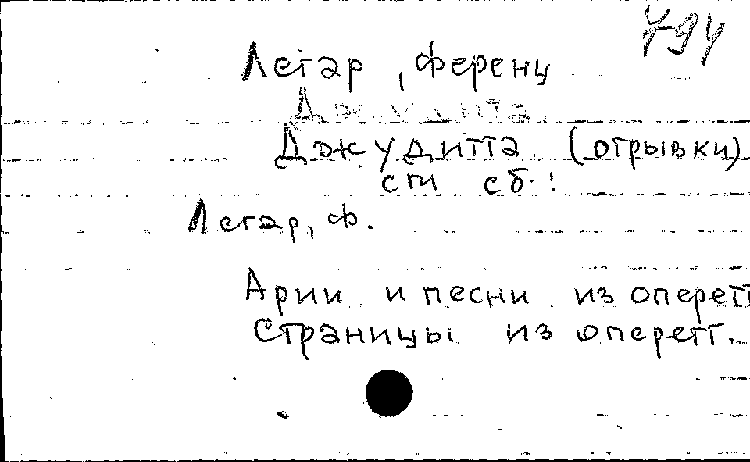 794
Легар, Ференц
Джудитта
Джудитта (отрывки)
см сб.:
Легар, Ф.
Арии и песни из оперетт
Страницы из оперетт.